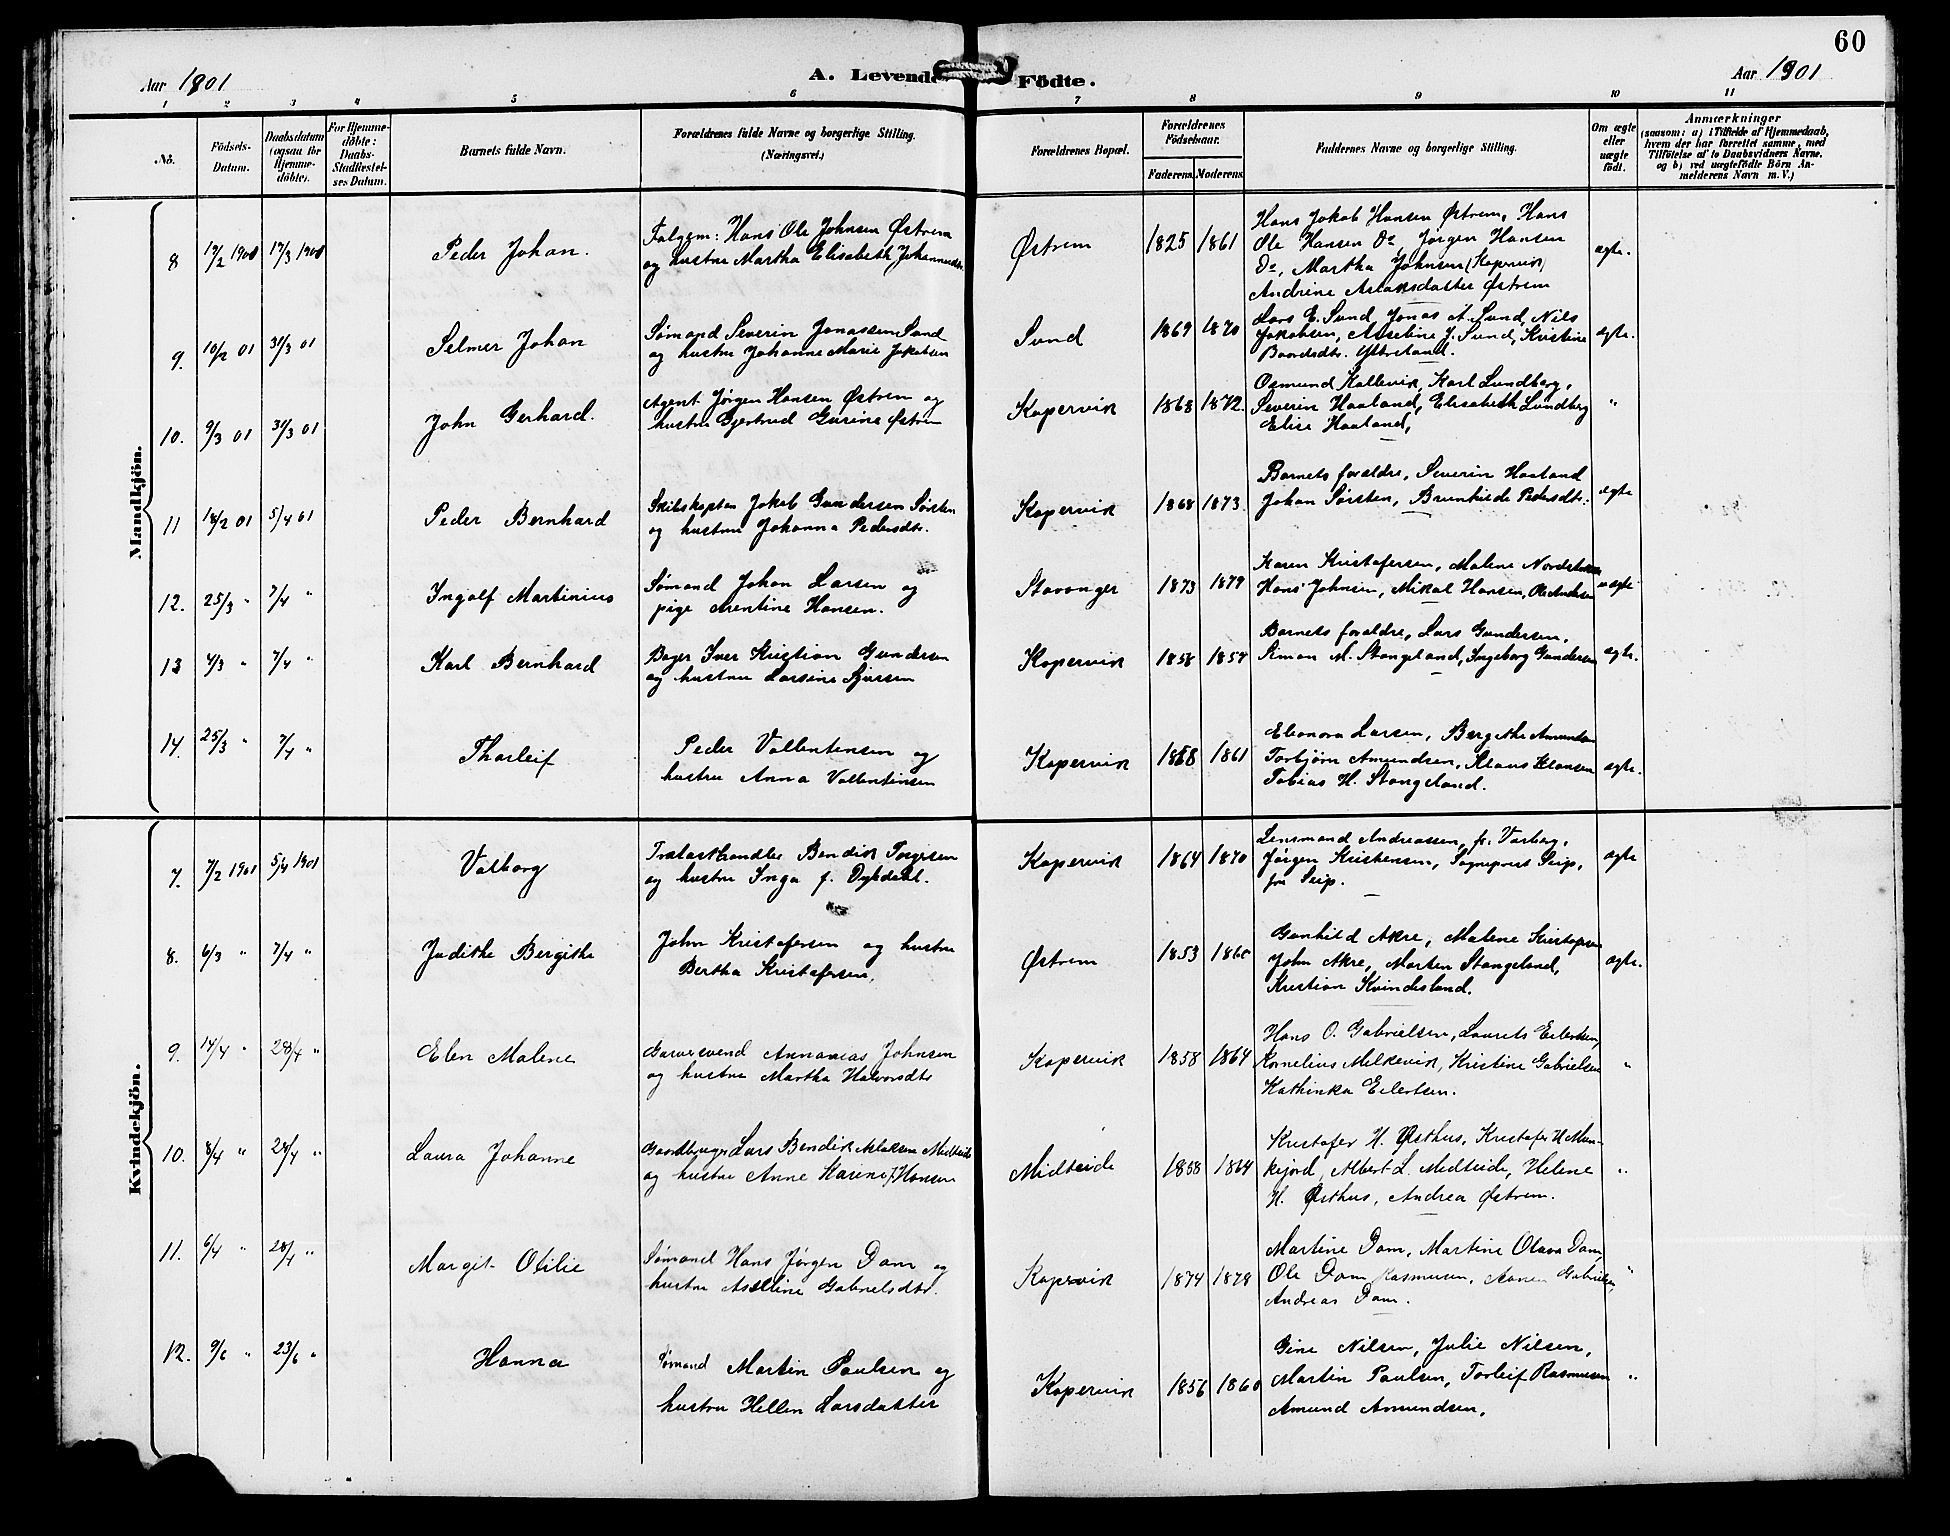 60
Aar 1901
A. Levende Födte.
Aar 1901
1 2 3 4 5 6 7 8 9 10 11
No.
Födsels-Datum.
Daabsdatum (ogsaa for Hjemme-döbte).
For Hjemme-döbte: Daabs-Stadfestel-ses Datum.
Barnets fulde Navn.
Forældrenes fulde Navne og borgerlige Stilling.
(Næringsvei.)
Forældrenes Bopæl.
Forældrenes Födselsaar.
Faderens. Moderens.
Faddernes Navne og borgerlige Stilling.
Om ægte eller uægte födt.
Anmærkninger
(saasom: a) i Tilfælde af Hjemmedaab,
hvem der har forrettet samme, med
Tilföielse af to Daabsvidners Navne,
og b) ved uægtefödte Börn An-
melderens Navn m. V.)
Mandkjön.
8 17/2 1901 17/3 1901 Peder Johan. Hans Ole Johnsen Østrem
og hustru Martha Elisabeth Johannesdtr
Østrem 1825 1861 Hans Jakob Hansen Østrem, Hans
Ole Hansen Do, Jørgen Hansen
Do, Martha Johnsen (Kopervik)
Andrine Aslaksdatter Østrem
ægte.
9. 10/2 01 31/3 01 Selmer Johan Sømand Severin Jonassen Sund
og hustru Johanne Marie Jakobsen
Sund 1869 1870 Lars E. Sund, Jonas A. Sund, Nils
Jakobsen, Anseline J. Sund, Kristine
Baardsdtr. Ytreland.
ægte.
10. 9/3 01 31/3 01 John Gerhard. Agent Jørgen Hansen Østrem og
hustru Gjertrud Gurine Østrem
Kopervik 1868 1872. Osmund Kallevik, Karl Lundberg,
Severin Haaland, Elisabeth Lundberg
Elise Haaland,
"
11 18/2 01 5/4 01 Peder Bernhard Skibskaptn Jakob Gundersen Sørsten
og hustru Johanna Pedersdtr.
Kopervik 1868 1873. Barnets forældre, Severin Haaland
Johan Sørsten, Brunhilde Pedersdtr.
ægte
12. 25/3 " 7/4 " Ingolf Martinius Sømand Johan Larsen og
pige Arentine Hansen.
Stavanger 1873 1879 Karen Kristofersen, Malene
Hans Johnsen, Mikal Hansen,
uægte
13 4/3 " 7/4 " Karl Bernhard Bager Iver Kristian Gundersen
og hustru Larsine
Kopervik 1858 1857 Barnets forældre, Lars Gundersen,
Simon M. Stangeland, Ingeborg Gundersen
ægte.
14. 25/3 " 7/4 " Tharleif Peder Vallentinsen og
hustru Anna Vallentinsen
Kopervik 1858 1861 Eleonora Larsen, Bergithe Amundsen
Torbjørn Amundsen, Klaus Klausen
Tobias H. Stangeland.
ægte.
Kvindekjön.
7. 7/2 1901 5/4 1901 Valborg Trælasthandler Bendik Torgersen
og hustru Inga f. Dybdahl.
Kopervik 1864 1870 Lensmand Andreassen, fr. Varberg,
Jørgen Kristensen, Sogneprest Seip,
fru Seip.
ægte
8. 6/3 " 7/4 " Judithe Bergithe John Kristofersen og hustru
Bertha Kristofersen,
Østrem 1853 1860 Gunhild Akre, Malene Kristofersen
John Akre, Morten Stangeland,
Kristian Kvindesland.
ægte.
9. 14/4 " 28/4 " Elen Malene Garversvend Annanias Johnsen
og hustru Martha Halvorsdtr
Kopervik 1858 1864 Hans O. Gabrielsen, Laurits Eilertsen,
Kornelius Milkevik, Kristine Gabrielsen
Kathinka Eilertsen.
"
10. 8/4 " 28/4 " Laura Johanne Gaardbruger Lars Bendik Midteide
og hustru Anne Karine Hansen
Midteide 1858 1864 Kristofer H. Østhus, Kristofer H Mun-
kejord, Albert L. Midteide, Helene
H. Østhus, Andrea Østrem.
"
11. 6/4 " 28/4 " Margit Otilie Sømand Hans Jørgen Dam og
hustru Asseline Gabrielsdtr.
Kopervik 1874 1878 Martine Dam, Martine Olava Dam,
Ole Dam Rasmusen, Aanen Gabrielsen,
Andreas Dam.
"
12. 9/6 " 23/6 " Hanna Sømand Martin Paulsen og
hustru Hellen Larsdatter
Kopervik 1856 1860 Gine Nilsen, Julie Nilsen,
Martin Paulsen, Torleif Rasmusen
Amund Amundsen,
"